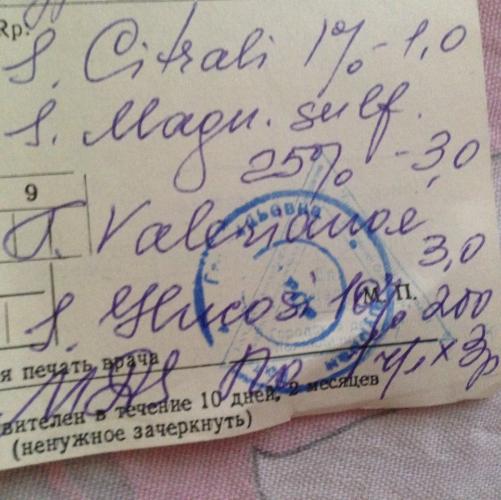 Rp:
S. Citrali 1% - 1,0
S. Magn. sulf.
25% - 3,0
9
T. Valerianae
3,0
S. Glucosi 10% 200
М. П.
я печать врача
MDS по 1 ч.л. х 3р
вителен в течение 10 дней, 2 месяцев
(ненужное зачеркнуть)